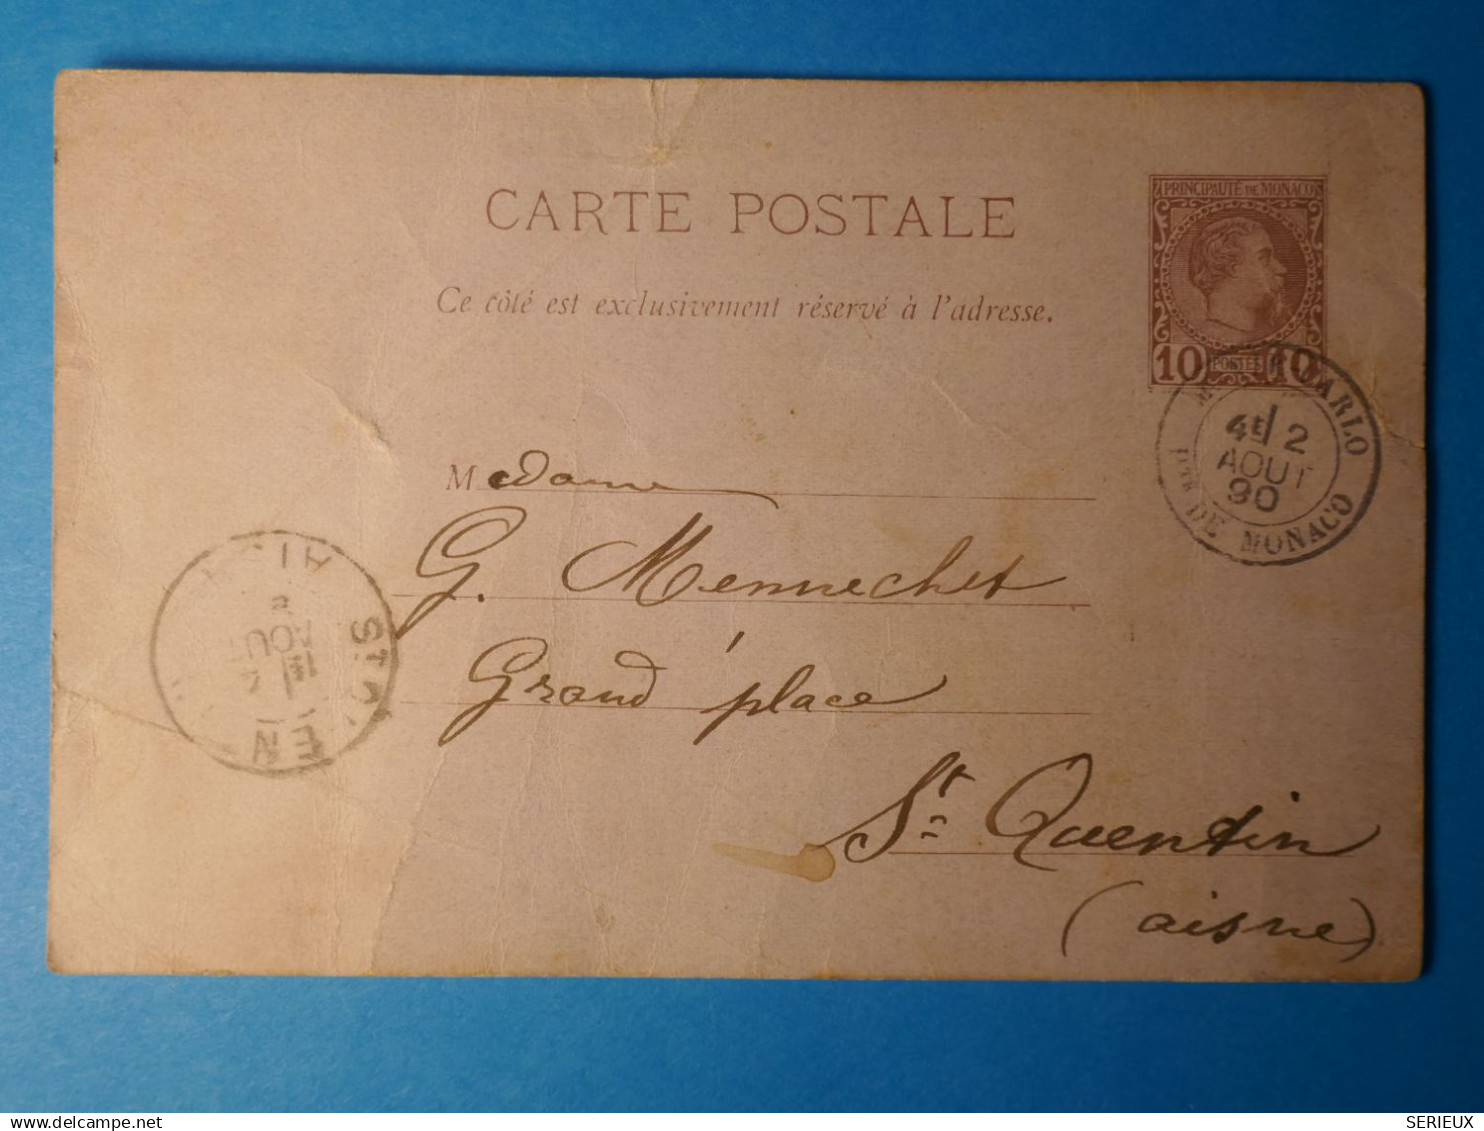 PRINCIPAUTÉ DE MONACO
CARTE POSTALE
Ce côté est exclusivement réservé à l'adresse.
10 POSTES 10
CARLO
4E 2
AOUT
90
DE MONACO
Madame
G. Mennechet
Grand' place
St Quentin
(aisne)
ST
EN
AOUT
1E
delcampe.net
SERIEUX